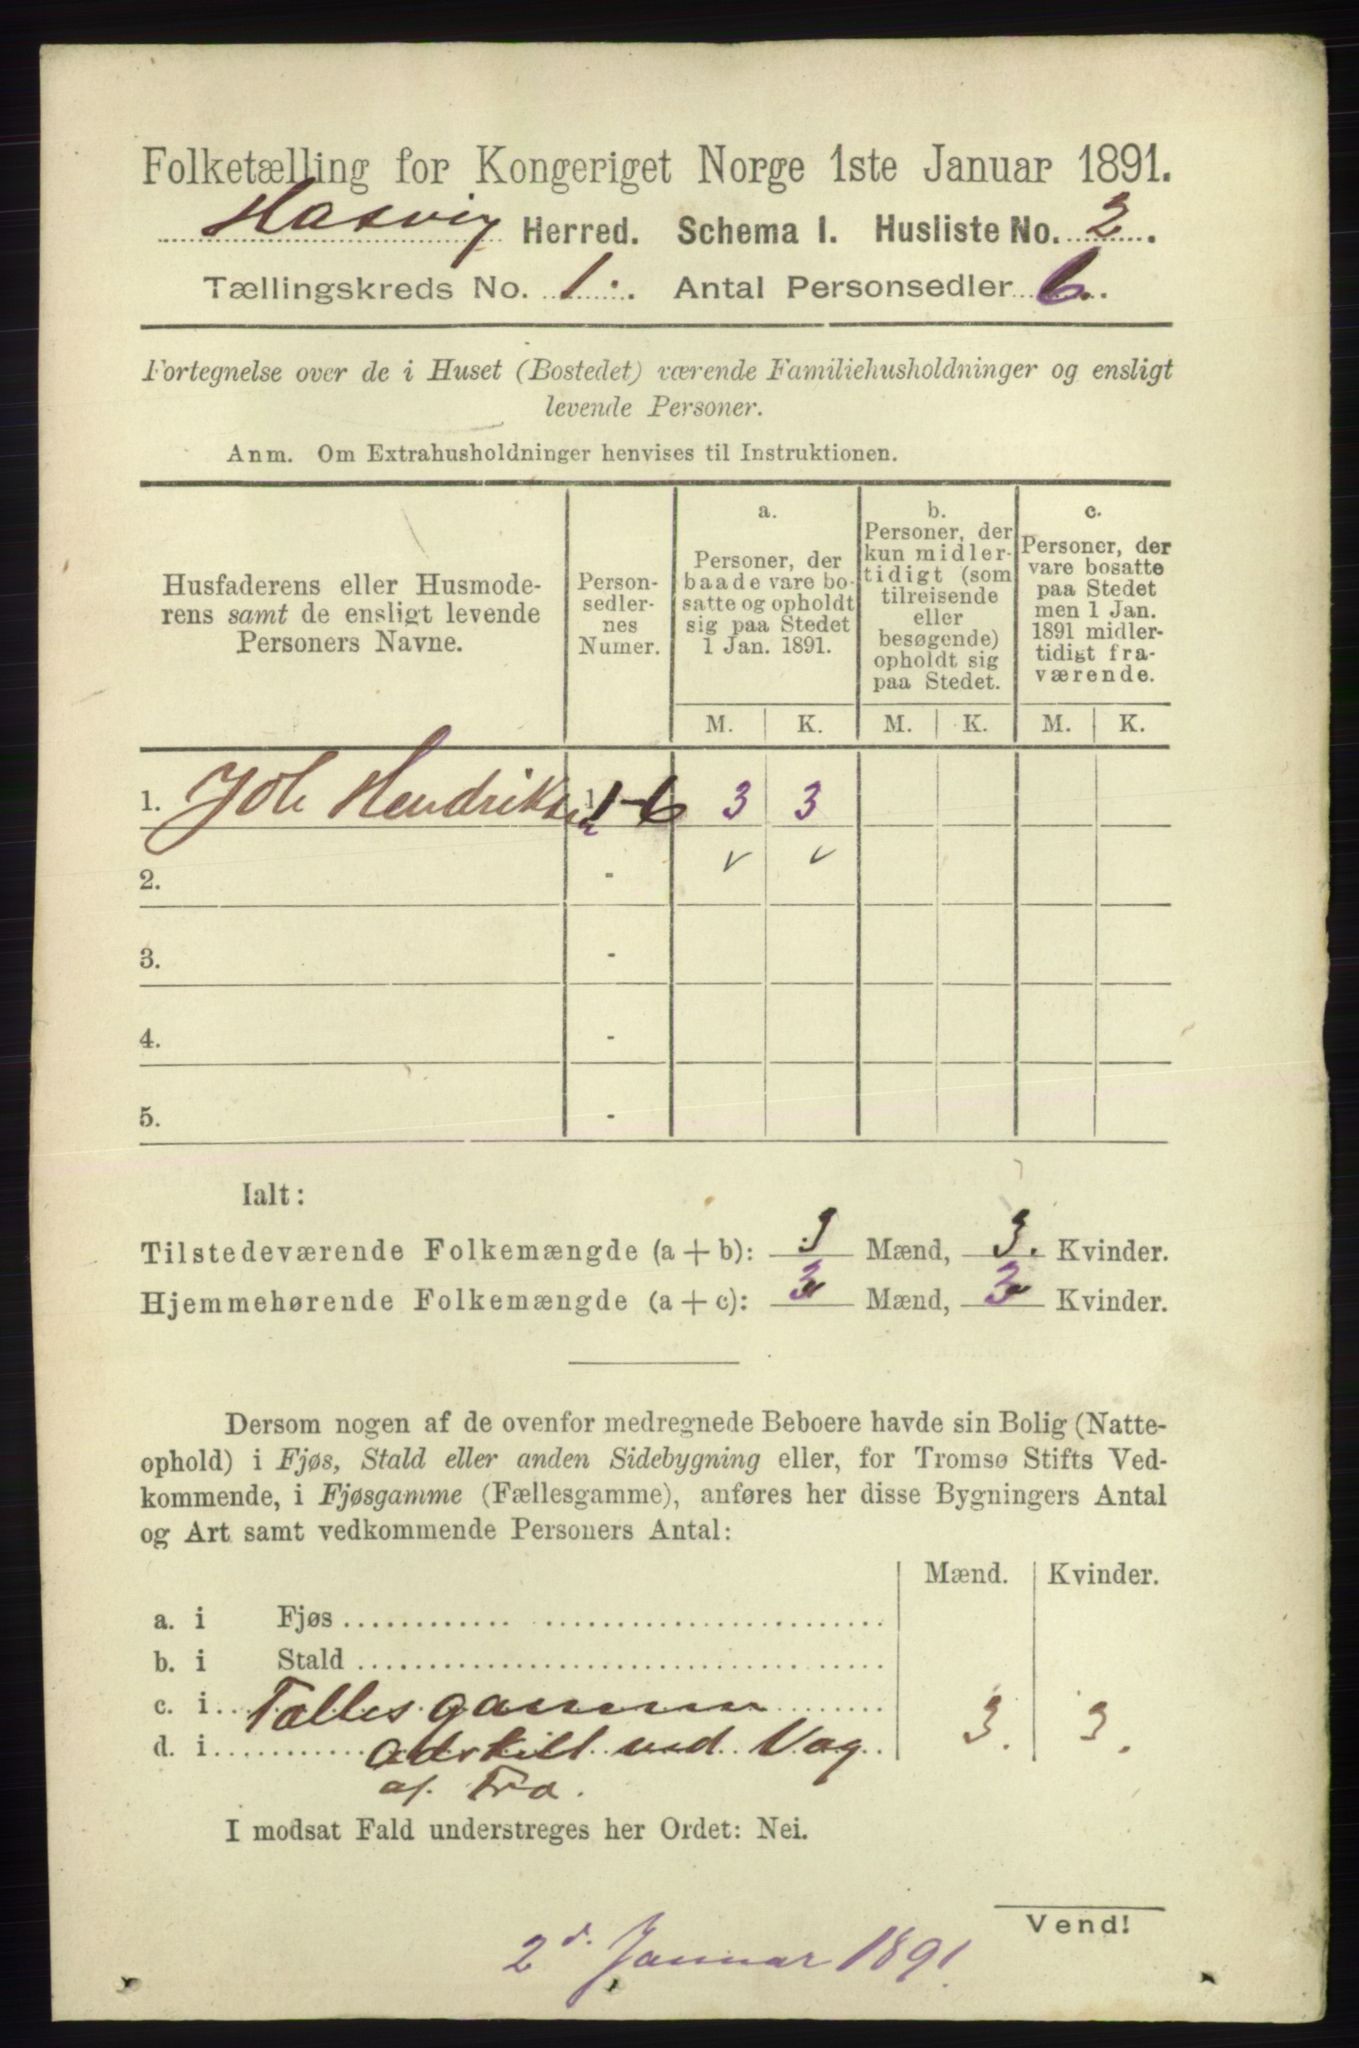 Folketælling for Kongeriget Norge 1ste Januar 1891.
Hasvig Herred. Schema I. Husliste No. 2.
Tællingskreds No. 1. Antal Personsedler 6.
Fortegnelse over de i Huset (Bostedet) værende Familiehusholdninger og ensligt
levende Personer.
Anm. Om Extrahusholdninger henvises til Instruktionen.
Husfaderens eller Husmode-
rens samt de ensligt levende
Personers Navne.
Person-
sedler-
nes
Numer.
a.
Personer, der
baade vare bo-
satte og opholdt
sig paa Stedet
1 Jan. 1891.
b.
Personer, der
kun midler-
tidigt (som
tilreisende
eller
besøgende)
opholdt sig
paa Stedet.
c.
Personer, der
vare bosatte
paa Stedet
men 1 Jan.
1891 midler-
tidigt fra-
værende.
M. K. M. K. M. K.
1. Joh Hendriksen 1-6 3 3
2. -
3. -
4. -
5. -
Ialt:
Tilstedeværende Folkemængde (a + b): 3 Mænd, 3. Kvinder.
Hjemmehørende Folkemængde (a + c): 3 Mænd, 3 Kvinder.
Dersom nogen af de ovenfor medregnede Beboere havde sin Bolig (Natte-
ophold) i Fjøs, Stald eller anden Sidebygning eller, for Tromsø Stifts Ved-
kommende, i Fjøsgamme (Fællesgamme), anføres her disse Bygningers Antal
og Art samt vedkommende Personers Antal:
Mænd. Kvinder.
a. i Fjøs
b. i Stald
c. i Fællesgamme 3. 3.
d. i adskilt ved Væg
af Træ.
I modsat Fald understreges her Ordet: Nei.
Vend!
2d. Januar 1891.